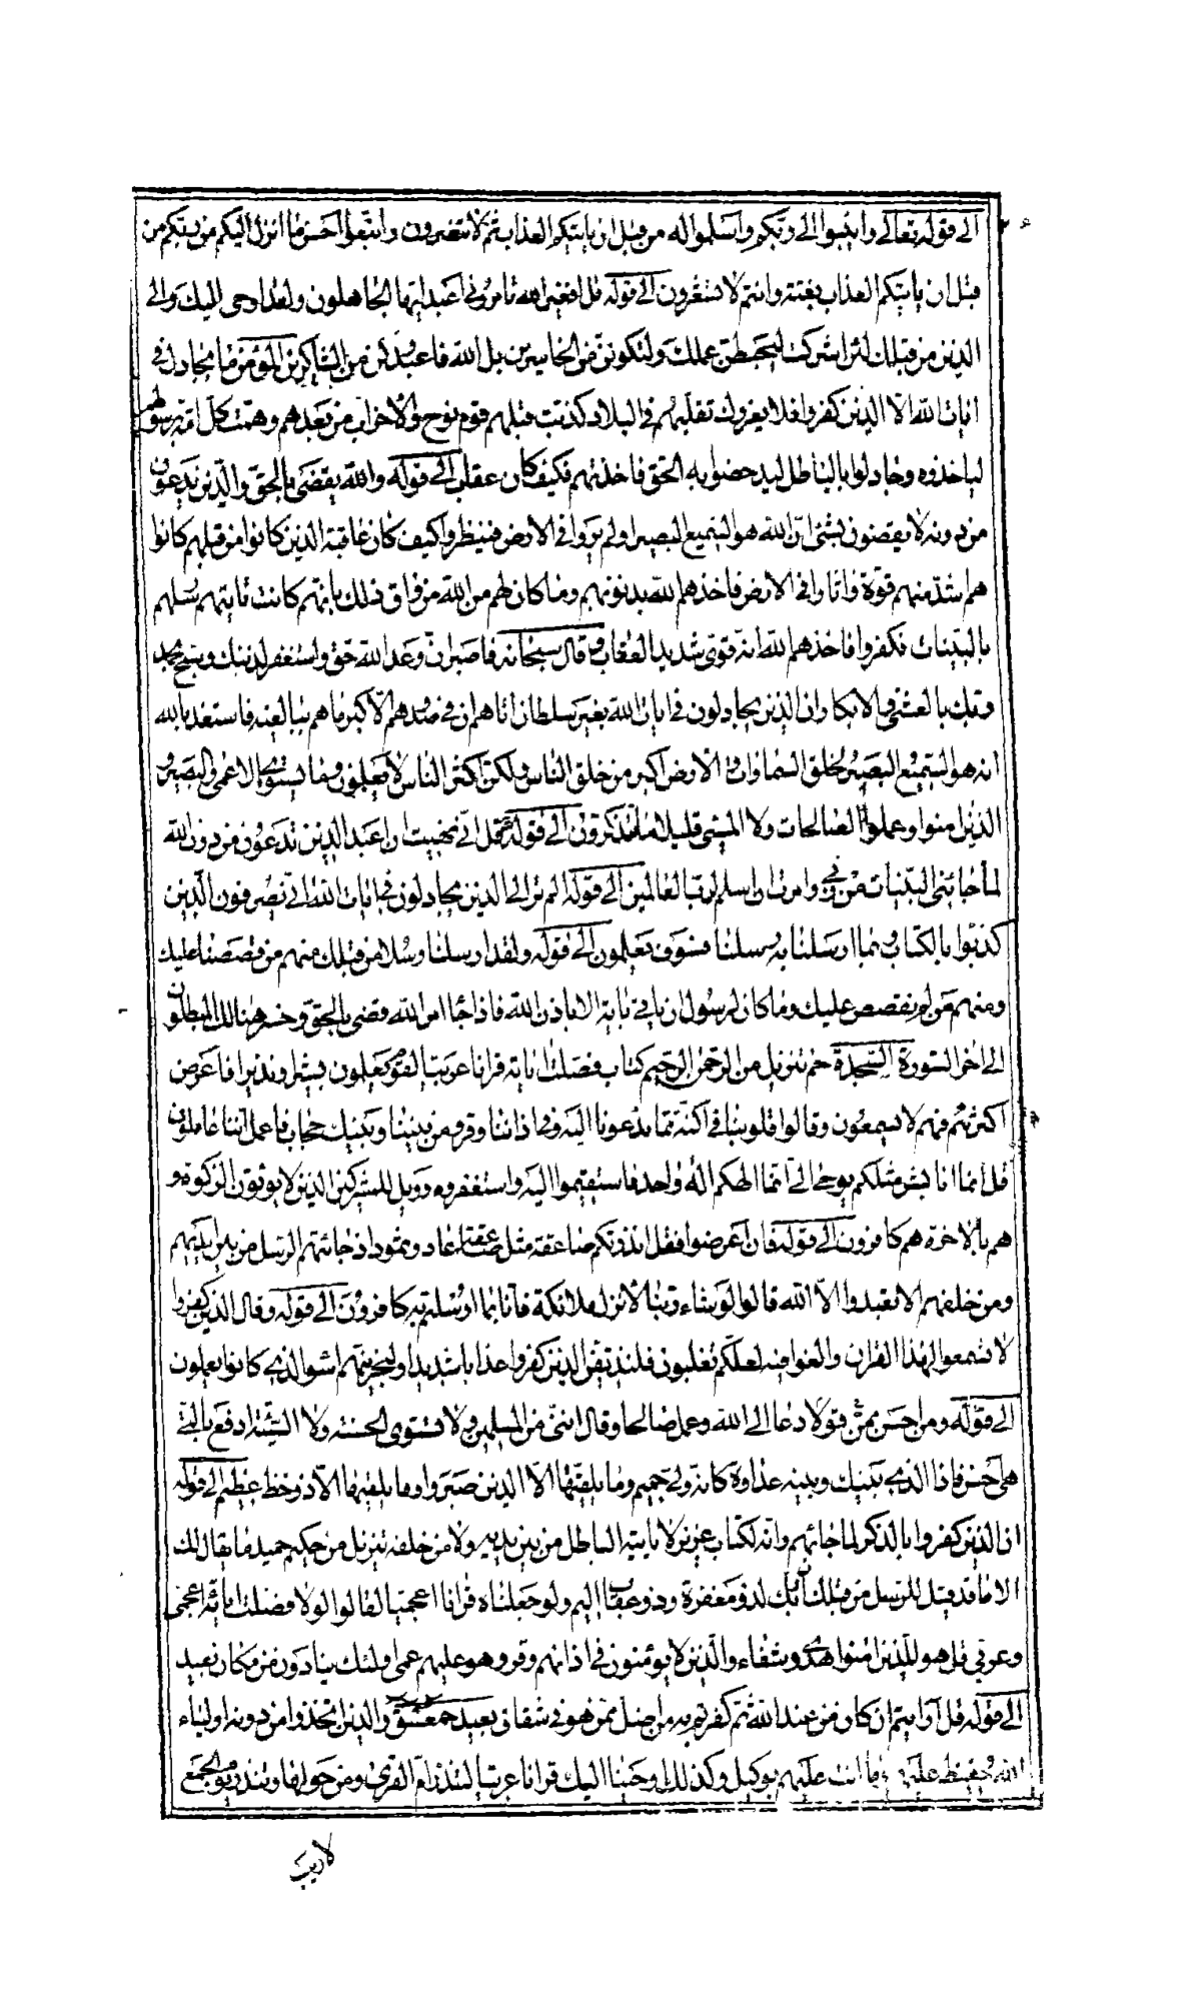 الى قوله تعالى وانيبوا الى ربكم واسلموا له من قبل ان ياتيكم العذاب ثم لا تنصرون واتبعوا احسن ما انزل اليكم من ربكم من
قبل ان ياتيكم العذاب بغتة وانتم لا تشعرون الى قوله قل افغير الله تامروني اعبد ايها الجاهلون ولقد اوحى اليك والى
الذين من قبلك لئن اشركت ليحبطن عملك ولتكونن من الخاسرين بل الله فاعبد وكن من الشاكرين المؤمن ما يجادل في
ايات الله الا الذين كفروا فلا يغررك تقلبهم في البلاد كذبت قبلهم قوم نوح والاحزاب من بعدهم وهمت كل امة برسولهم
لياخذوه وجادلوا بالباطل ليدحضوا به الحق فاخذتهم فكيف كان عقاب الى قوله والله يقضى بالحق والذين يدعون
من دونه لا يقضون بشئ ان الله هو السميع البصير اولم يروا في الارض فينظروا كيف كان عاقبة الذين كانوا من قبلهم كانوا
هم اشد منهم قوة واثارا في الارض فاخذهم الله بذنوبهم وما كان لهم من الله من واق ذلك بانهم كانت تاتيهم رسلهم
بالبينات فكفروا فاخذهم الله انه قوى شديد العقاب وقال سبحانه فاصبر ان وعد الله حق واستغفر لذنبك وسبح بحمد
ربك بالعشي والابكار ان الذين يجادلون في ايات الله بغير سلطان اتاهم ان في صدورهم الا كبر ما هم ببالغيه فاستعذ بالله
انه هو السميع البصير لخلق السماوات والارض اكبر من خلق الناس ولكن اكثر الناس لا يعلمون وما يستوي الاعمى والبصير و
الذين امنوا وعملوا الصالحات ولا المسئ قليلا ما تتذكرون الى قوله قل انى نهيت ان اعبد الذين تدعون من دون الله
لما جائني البينات من ربي وامرت ان اسلم لرب العالمين الى قوله الم تر الى الذين يجادلون في ايات الله انى يصرفون الذين
كذبوا بالكتاب وبما ارسلنا به رسلنا فسوف يعلمون الى قوله ولقد ارسلنا رسلا من قبلك منهم من قصصنا عليك
ومنهم من لم نقصص عليك وما كان لرسول ان ياتي باية الا باذن الله فاذا جاء امر الله قضى بالحق وخسر هنالك المبطلون
الى اخر السورة السجدة حم تنزيل من الرحمن الرحيم كتاب فصلت اياته قرانا عربيا لقوم يعلمون بشيرا ونذيرا فاعرض
اكثرهم فهم لا يسمعون وقالوا قلوبنا في اكنة مما تدعونا اليه وفي اذاننا وقر ومن بيننا وبينك حجاب فاعمل اننا عاملون
قل انما انا بشر مثلكم يوحى الى انما الهكم اله واحد فاستقيموا اليه واستغفروه وويل للمشركين الذين لا يؤتون الزكوة و
هم بالاخرة هم كافرون الى قوله فان اعرضوا فقل انذرتكم صاعقة مثل صاعقة عاد وثمود اذ جائتهم الرسل من بين ايديهم
ومن خلفهم الا تعبدوا الا الله قالوا لو شاء ربنا لانزل ملائكة فانا بما ارسلتم به كافرون الى قوله وقال الذين كفروا
لا تسمعوا لهذا القران والغوا فيه لعلكم تغلبون فلنذيقن الذين كفروا عذابا شديدا ولنجزينهم اسوا الذي كانوا يعملون
الى قوله ومن احسن قولا ممن دعا الى الله وعمل صالحا وقال اننى من المسلمين ولا تستوى الحسنة ولا السيئة ادفع بالتي
هي احسن فاذا الذي بينك وبينه عداوة كانه ولي حميم وما يلقيها الا الذين صبروا وما يلقيها الا ذو حظ عظيم الى قوله
ان الذين كفروا بالذكر لما جائهم وانه لكتاب عزيز لا ياتيه الباطل من بين يديه ولا من خلفه تنزيل من حكيم حميد ما يقال لك
الا ما قد قيل للرسل من قبلك ان ربك لذو مغفرة وذو عقاب اليم ولو جعلناه قرانا اعجميا لقالوا لولا فصلت اياته اعجمي
وعربي قل هو للذين امنوا هدى وشفاء والذين لا يؤمنون في اذانهم وقر وهو عليهم عمى اولئك ينادون من مكان بعيد
الى قوله قل ارايتم ان كان من عند الله ثم كفرتم به من اضل ممن هو في شقاق بعيد حمعسق والذين اتخذوا من دونه اولياء
الله حفيظ عليهم وما انت عليهم بوكيل وكذلك اوحينا اليك قرانا عربيا لتنذر ام القرى ومن حولها وتنذر يوم الجمع
لا ريب